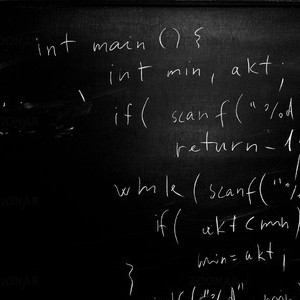 int main () {
int min, akt;
if( scanf("%d
return -1
while (scanf("%
if( akt < min)
min = akt;
}